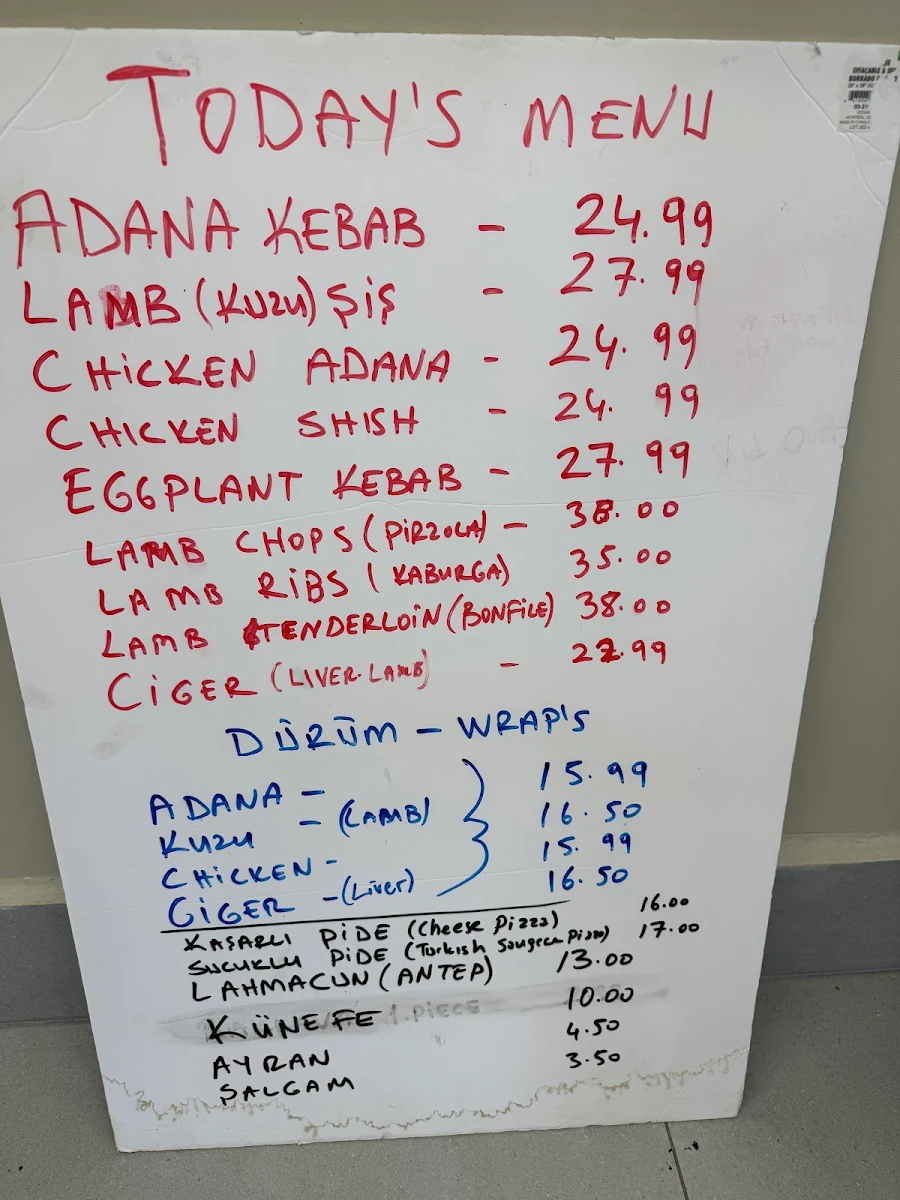 TODAY'S MENU
ADANA KEBAB - 24.99
LAMB (KUZU) ŞİŞ - 27.99
CHICKEN ADANA - 24.99
CHICKEN SHISH - 24.99
EGGPLANT KEBAB - 27.99
LAMB CHOPS (PİRZOLA) - 38.00
LAMB RİBS (KABURGA) 35.00
LAMB TENDERLOİN (BONFİLE) 38.00
CİGER (LIVER-LAMB) - 22.99
DÜRÜM - WRAP'S
ADANA - 15.99
KUZU - (LAMB) 16.50
CHİCKEN - 15.99
CİGER - (Liver) 16.50
KAŞARLI PİDE (Cheese Pizza) 16.00
SUCUKLU PİDE (Turkish Pizza) 17.00
LAHMACUN (ANTEP) 13.00
KÜNEFE 1. PIECE 10.00
AYRAN 4.50
ŞALGAM 3.50